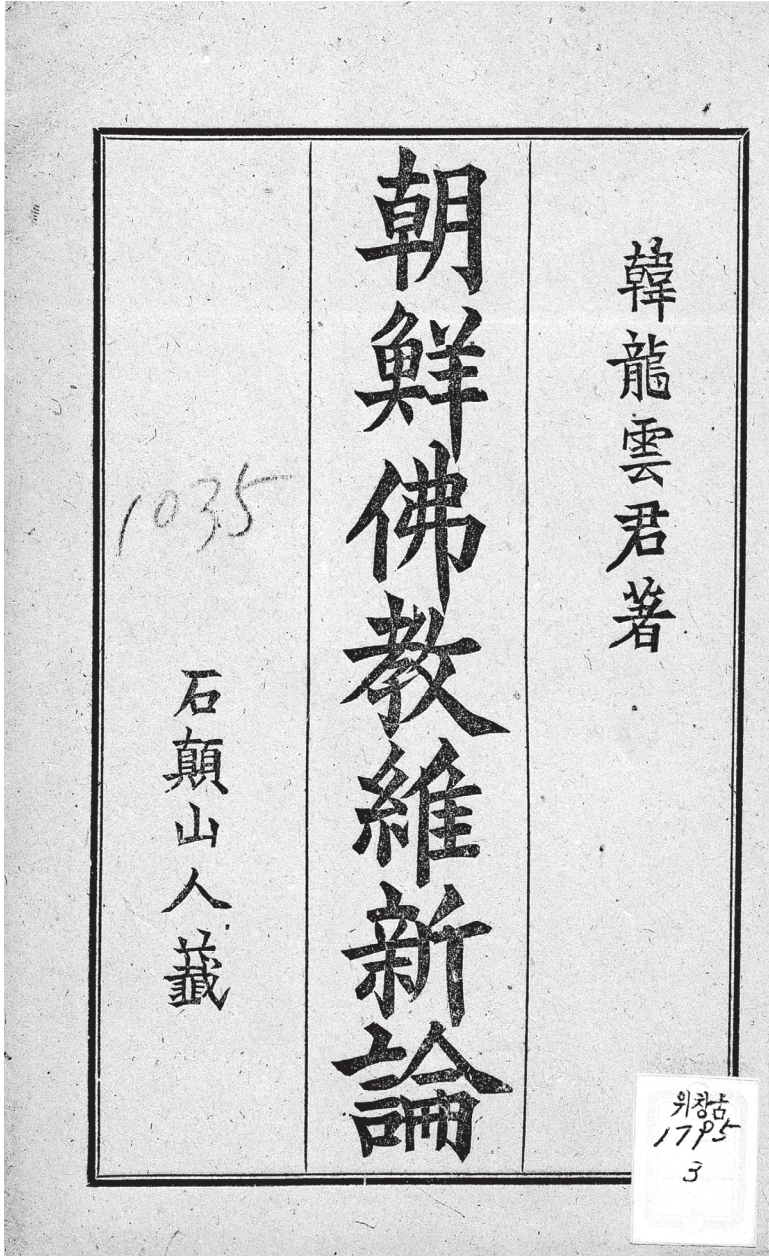 韓龍雲君著
朝鮮佛教維新論
石顛山人
1035
위창古
1795
3